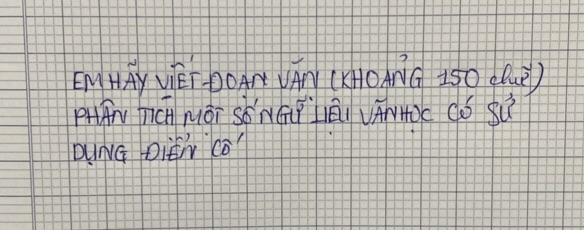 EM HÃY VIẾT ĐOẠN VĂN (KHOẢNG 150 chữ)
PHÂN TÍCH MỘT SỐ NGỮ LIỆU VĂN HỌC CÓ SỬ
DỤNG ĐIỂN CỐ